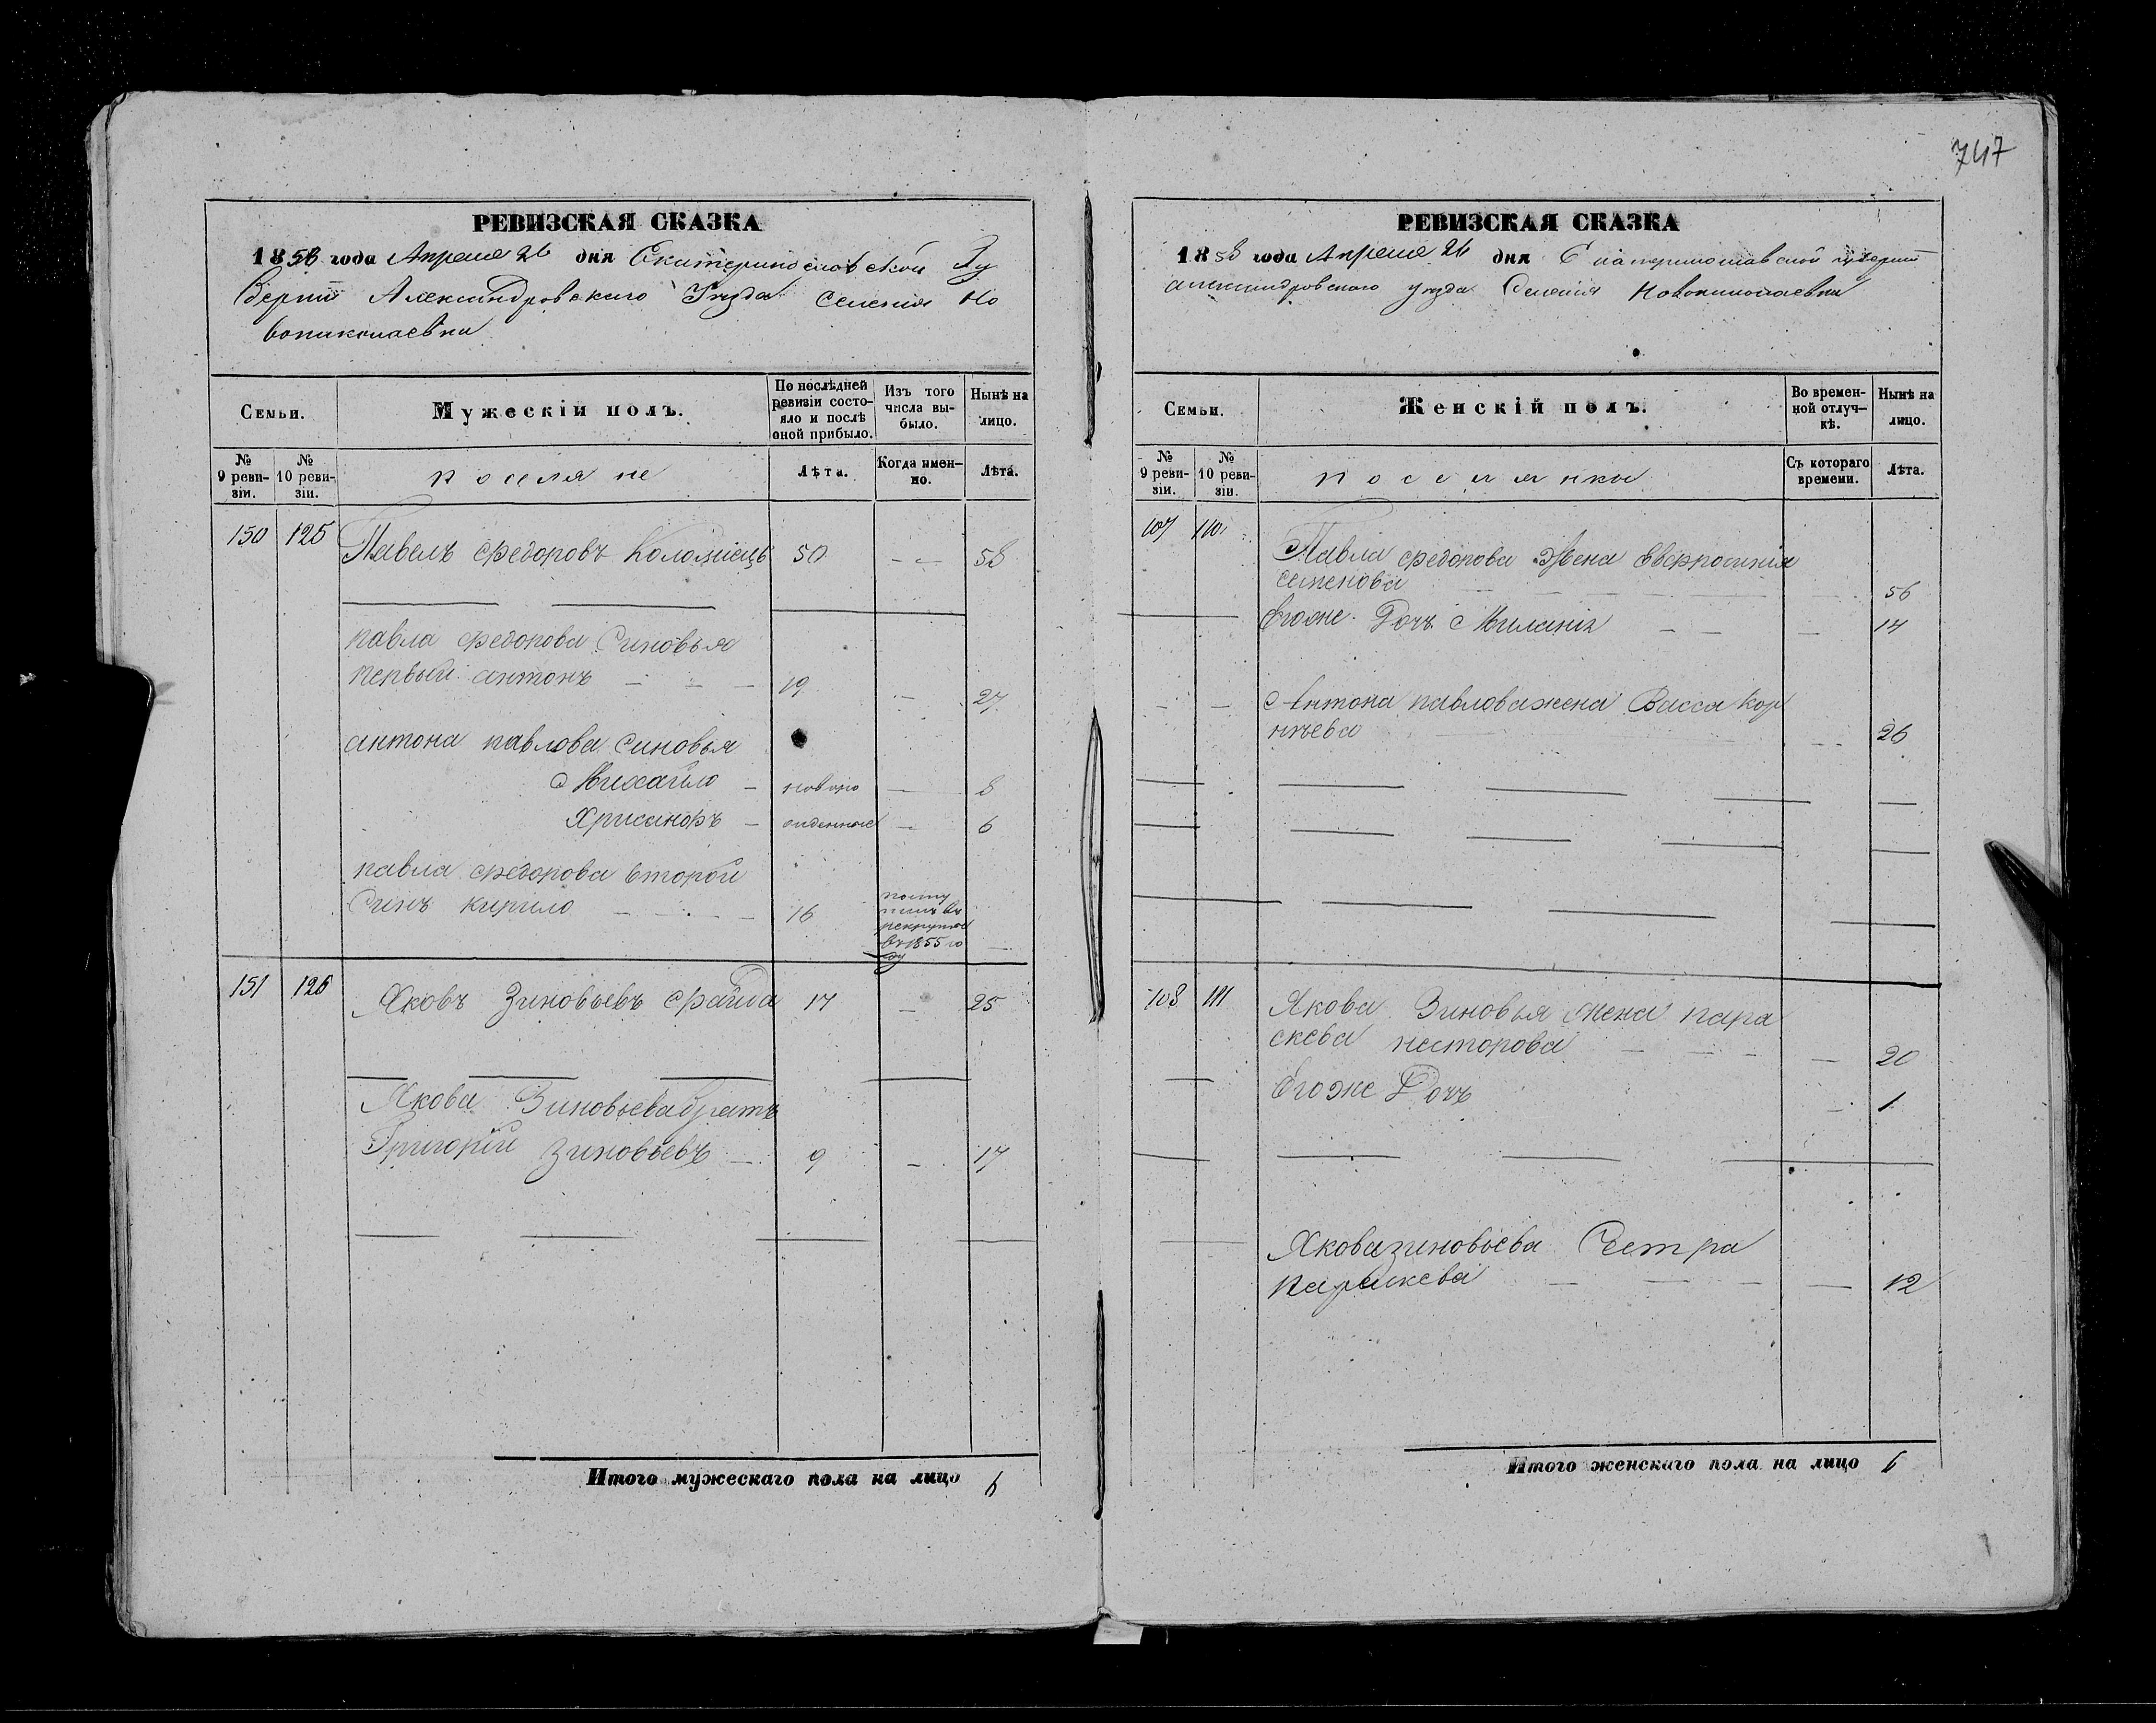 747
РЕВИЗСКАЯ СКАЗКА
1858 года Апреля 26 дня Екатеринославской Гу
берніи Александровскаго Уезда Селенія Но
вониколаевки
Семьи.
Мужескій полъ.
По послѣдней ревизіи состояло и послѣ оной прибыло.
Изъ того числа выбыло.
Нынѣ на лицо.
№ 9 ревизіи.
№ 10 ревизіи.
поселяне
Лѣта.
Когда именно.
Лѣта.
150 125 Павелъ Федоровъ Коломіецъ 50 — — 58
павла федорова Синовья
первый антонъ — — — 19 — 27
антона павлова синовья
Михайло — новоро — 8
Хрисанфъ — жденные — 6
павла федорова второй
Синъ кирило — — — 16
посту
пилъ въ
рекруты
въ 1855 го
ду —
151 126 Яковъ Зиновьевъ 17 — 25
Якова Зиновьева братъ
Григорій Зиновьевъ — 9 — 17
Итого мужескаго пола на лицо 6
РЕВИЗСКАЯ СКАЗКА
1858 года Апреля 26 дня Екатеринославской губерніи
александровскаго уезда Селенія Новониколаевки
Семьи.
Женскій полъ.
Во временной отлучкѣ.
Нынѣ на лицо.
№ 9 ревизіи.
№ 10 ревизіи.
поселянки
Съ котораго времени.
Лѣта.
107 110 Павла федорова Жена Евфросинія
семенова — 56
Егоже Дочъ Миланія — — — 14
— — Антона павлова жена Васса кор
нѣева — 26
108 111 Якова Зиновья жена пара
скева несторова — — — — 20
Егоже Дочъ — 1
Якова зиновьева Сестра
параскева — — — — 12
Итого женскаго пола на лицо 6